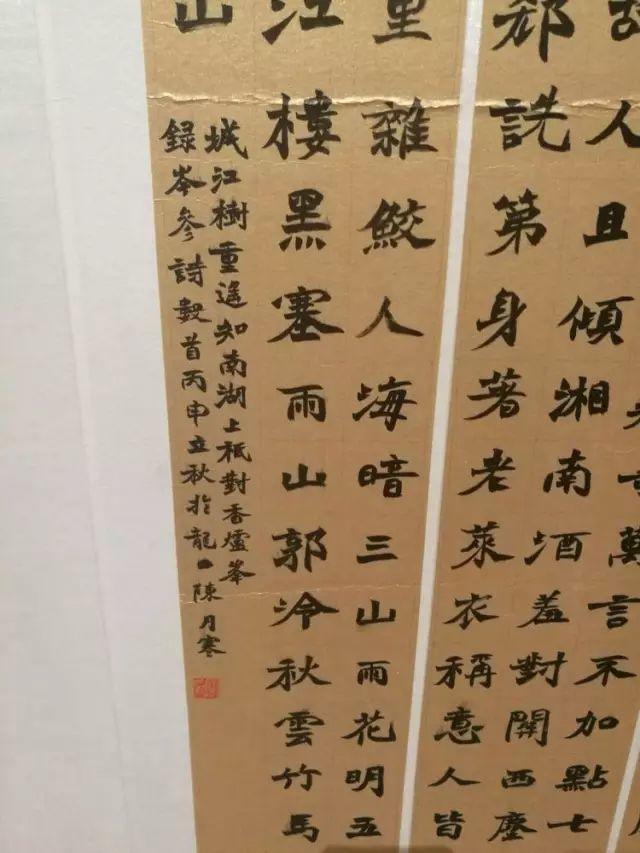 萬言不加點七
人且傾湘南酒羞對關西塵
郄詵第身著老萊衣稱意人皆
里雜鮫人海暗三山雨花明五
江樓黑塞雨山郭冷秋雲竹馬
山
城江樹重遙知南湖上祗對香爐峯
録岑參詩數首丙申立秋於龍陳月寒